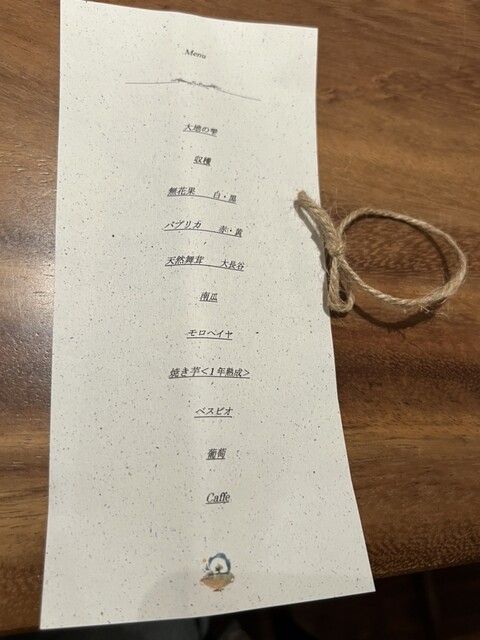 Menu
大地の雫
収穫
無花果　白・黒
パプリカ　赤・黄
天然舞茸　大長谷
南瓜
モロヘイヤ
焼き芋＜１年熟成＞
ベスビオ
葡萄
Caffe